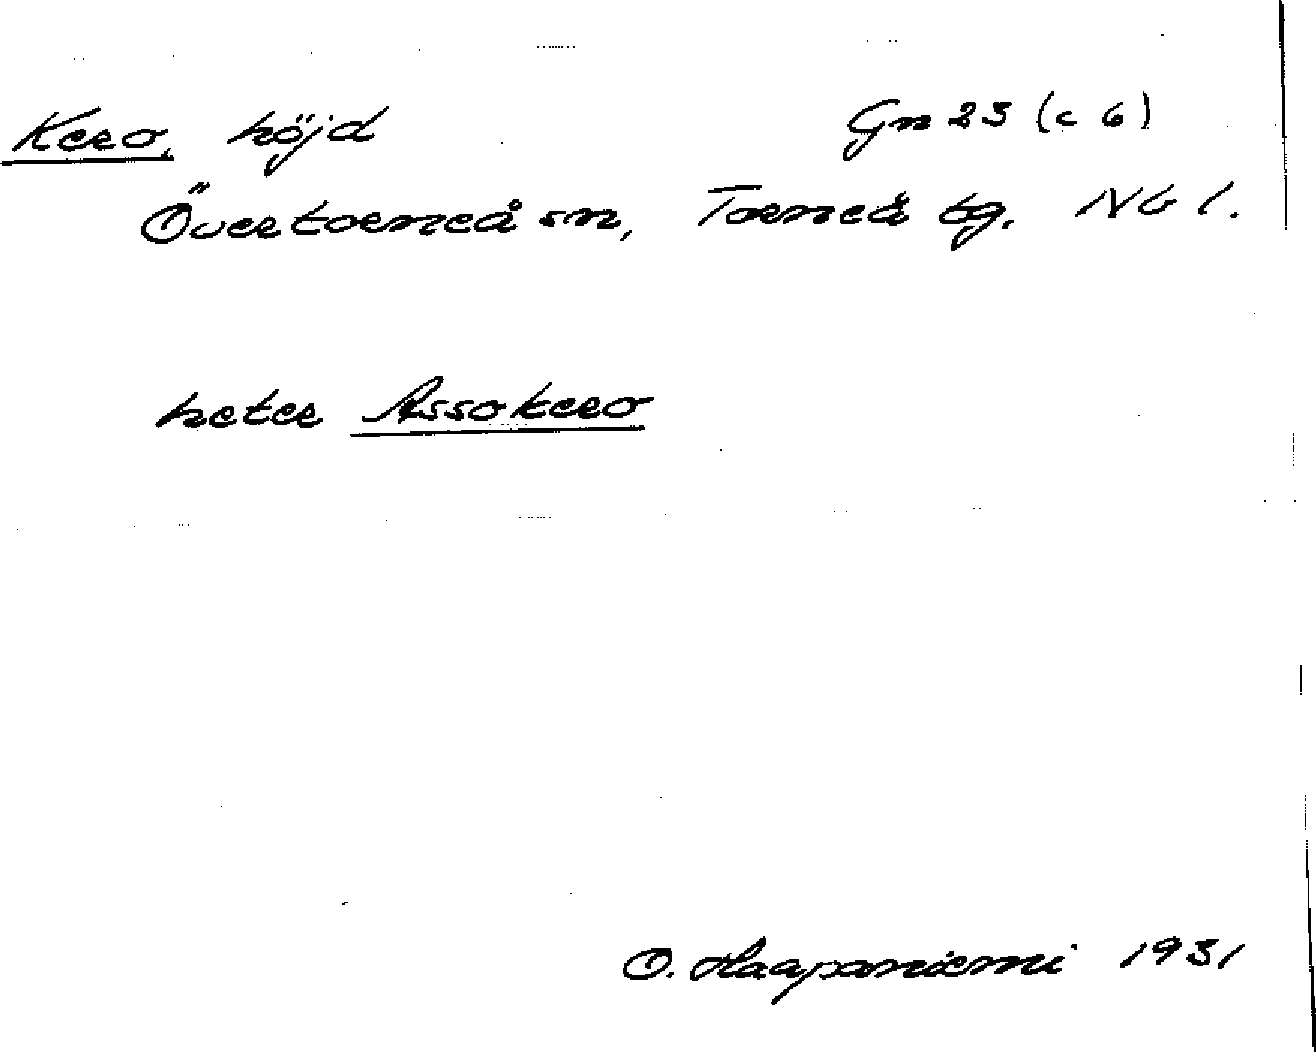 Kero, höjd Gn 23 (c 6)
Övertorneå sn, Torneå tg. Nb l.
heter Assokero
O. Haapaniemi 1931